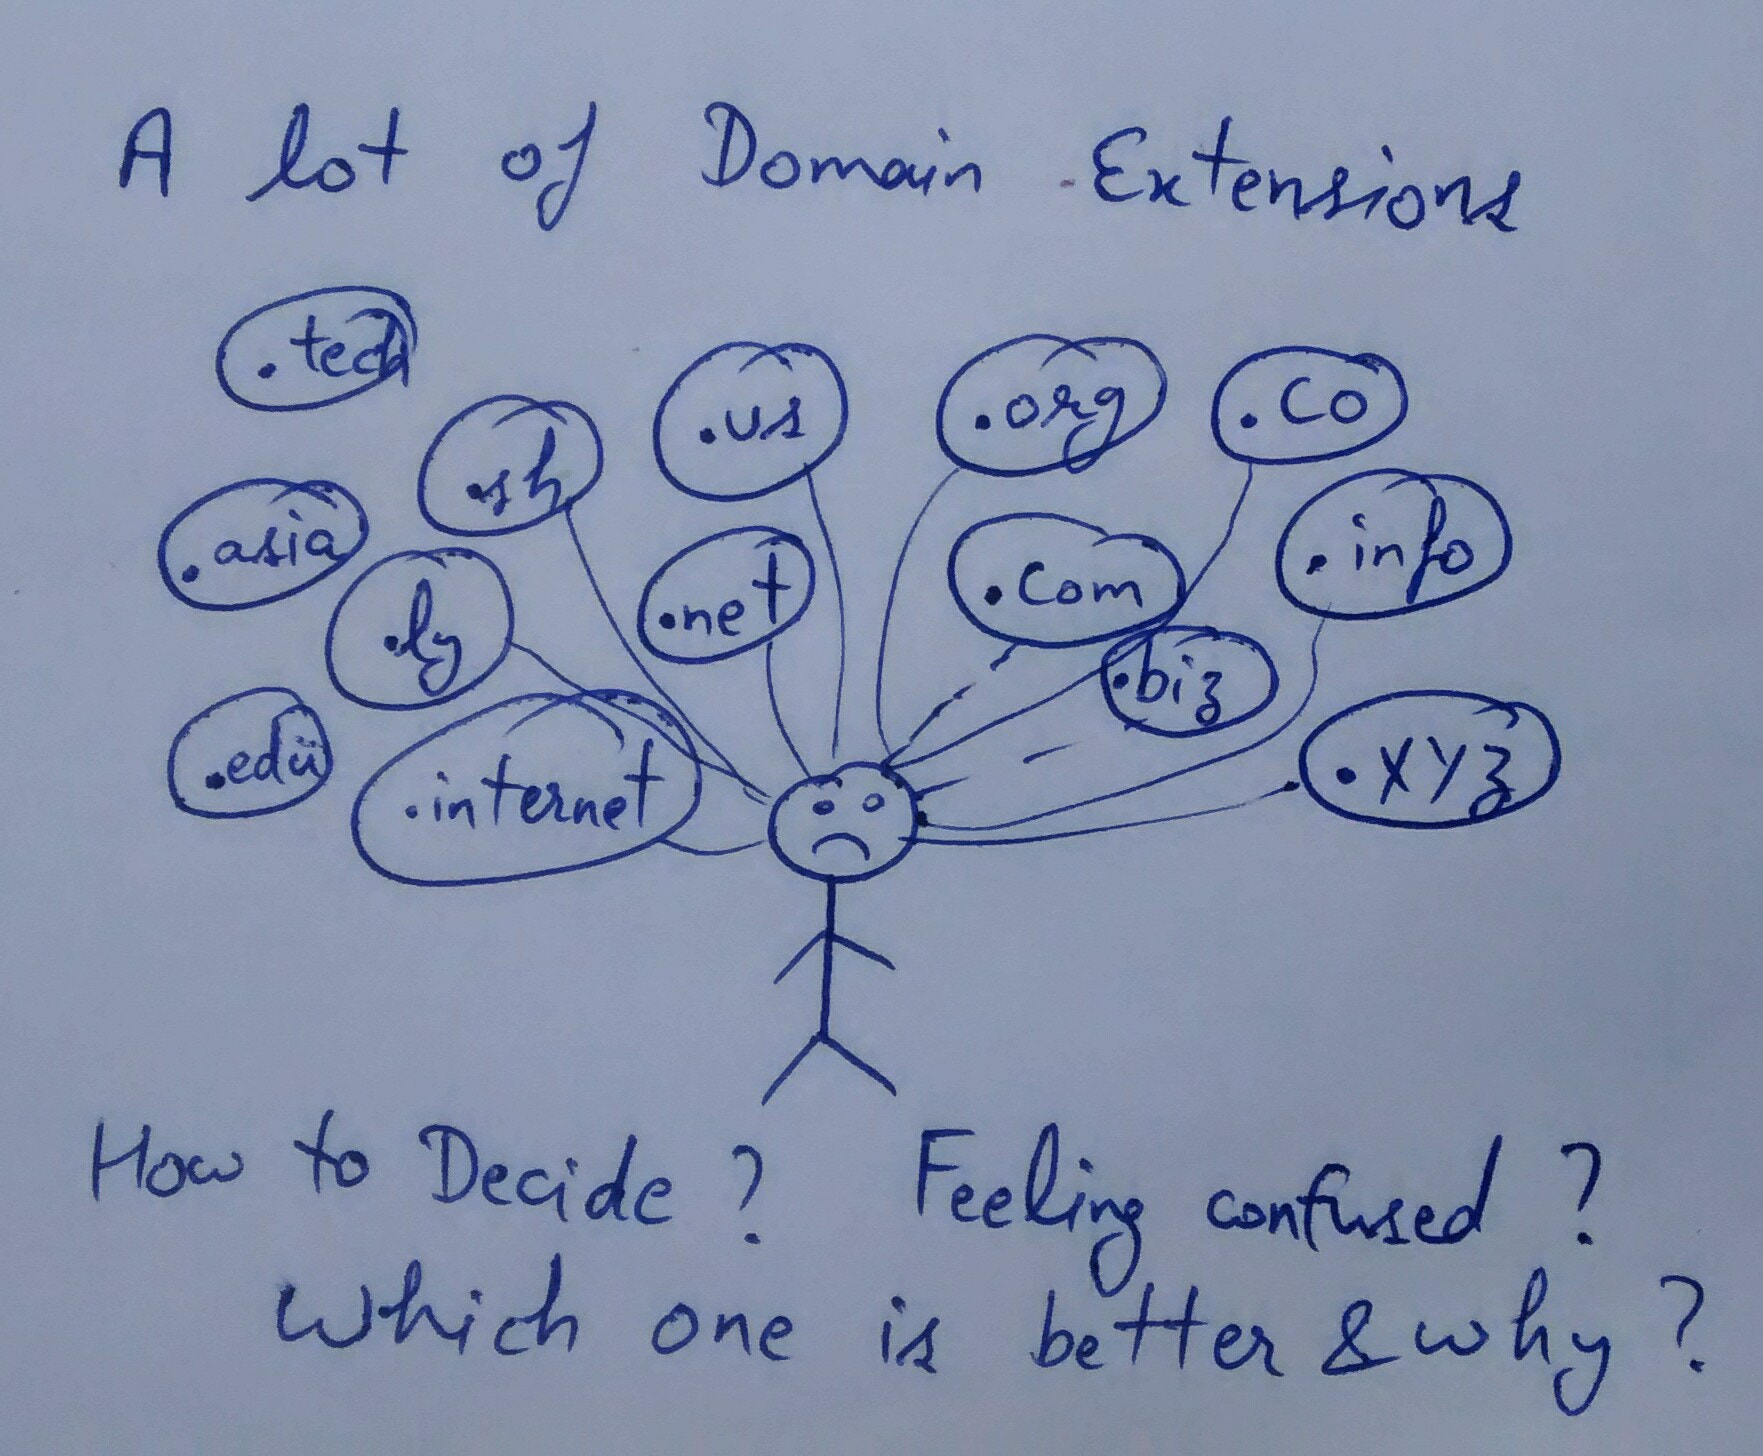 A lot of Domain Extensions
.tech
.sh
.us
.org
.co
.asia
.ly
.net
.com
.info
.edu
.internet
.biz
.xyz
How to Decide ? Feeling confused ?
Which one is better & why ?